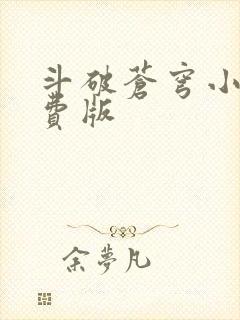 斗破蒼穹小
費版
余夢凡